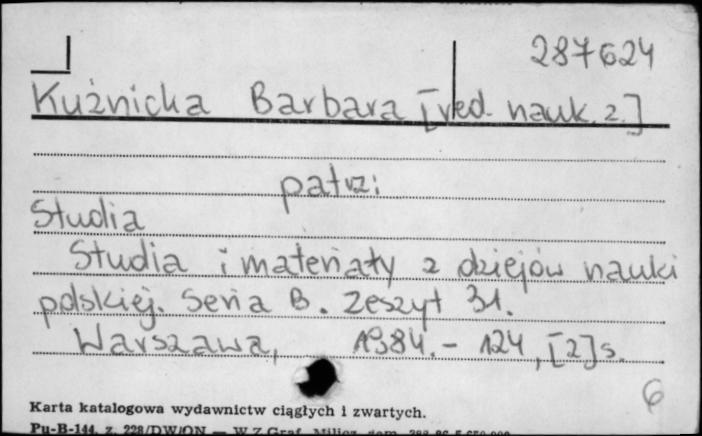 287624
Kuźnicka Barbara [red. nauk. z.]
patrz:
Studia
Studia i materiały z dziejów nauki
polskiej. Seria B. Zeszyt 31.
Warszawa, 1984. – 124, [2] s.
6
Karta katalogowa wydawnictw ciągłych i zwartych.
Pu-B-144. z. 228/DW/ON — W.Z.Graf. Milicz